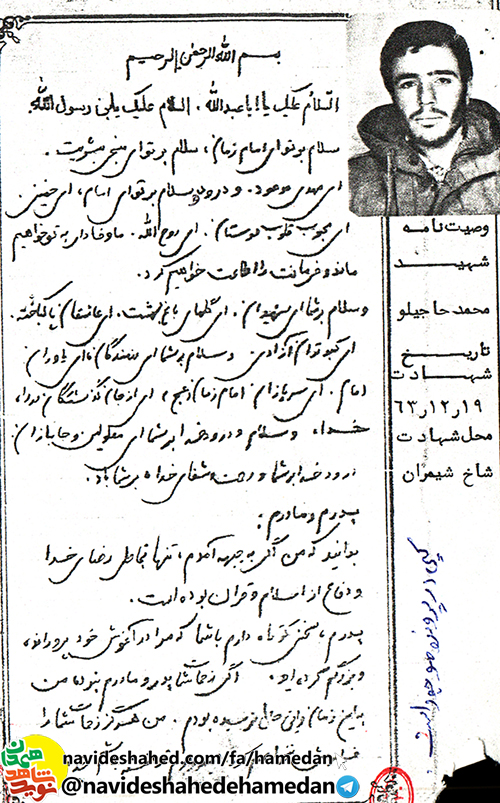 بسم الله الرحمن الرحیم
السلام علیک یا اباعبدالله. السلام علیک یابن رسول الله
سلام بر توای امام زمان، سلام بر توای منجی بشریت.
ای مهدی موعود. و درود و سلام بر توای امام، ای خمینی
ای محبوب قلوب دوستان. ای روح الله. ما وفادار به تو خواهیم
ماند و فرمانت را اطاعت خواهیم کرد.
و سلام بر شما ای شهیدان. ای گلهای باغ بهشت. ای عاشقان پاکباخته.
ای کبوتران آزادی و سلام بر شما ای رزمندگان، ای یاوران
امام. ای سربازان امام زمان (عج)، ای از جان گذشتگان
خدا، و سلام و درود خدا بر شما ای معلولین و جانبازان
درود خدا بر شما و رحمت و شفای خدا بر شما باد.
پدرم و مادرم:
بدانید که من اگر به جبهه آمدم، تنها بخاطر رضای خدا
و دفاع از اسلام و قرآن بوده است.
پدرم، سخنی کوتاه دارم باشما که مرا در آغوش خود پروراندید
و بزرگم کرده اید. اگر زحمات شما پدر و مادرم نبود، من
به این زمان و این حال نرسیده بودم. من هرگز زحمات شما را
وصیت نامه
شهید
محمد حاجیلو
تاریخ
شهادت
۶۳٫۱۲٫۱۹
محل شهادت
شاخ شمیران
نوید شاهد همدان
navideshahed.com/fa/hamedan
@navideshahedehamedan